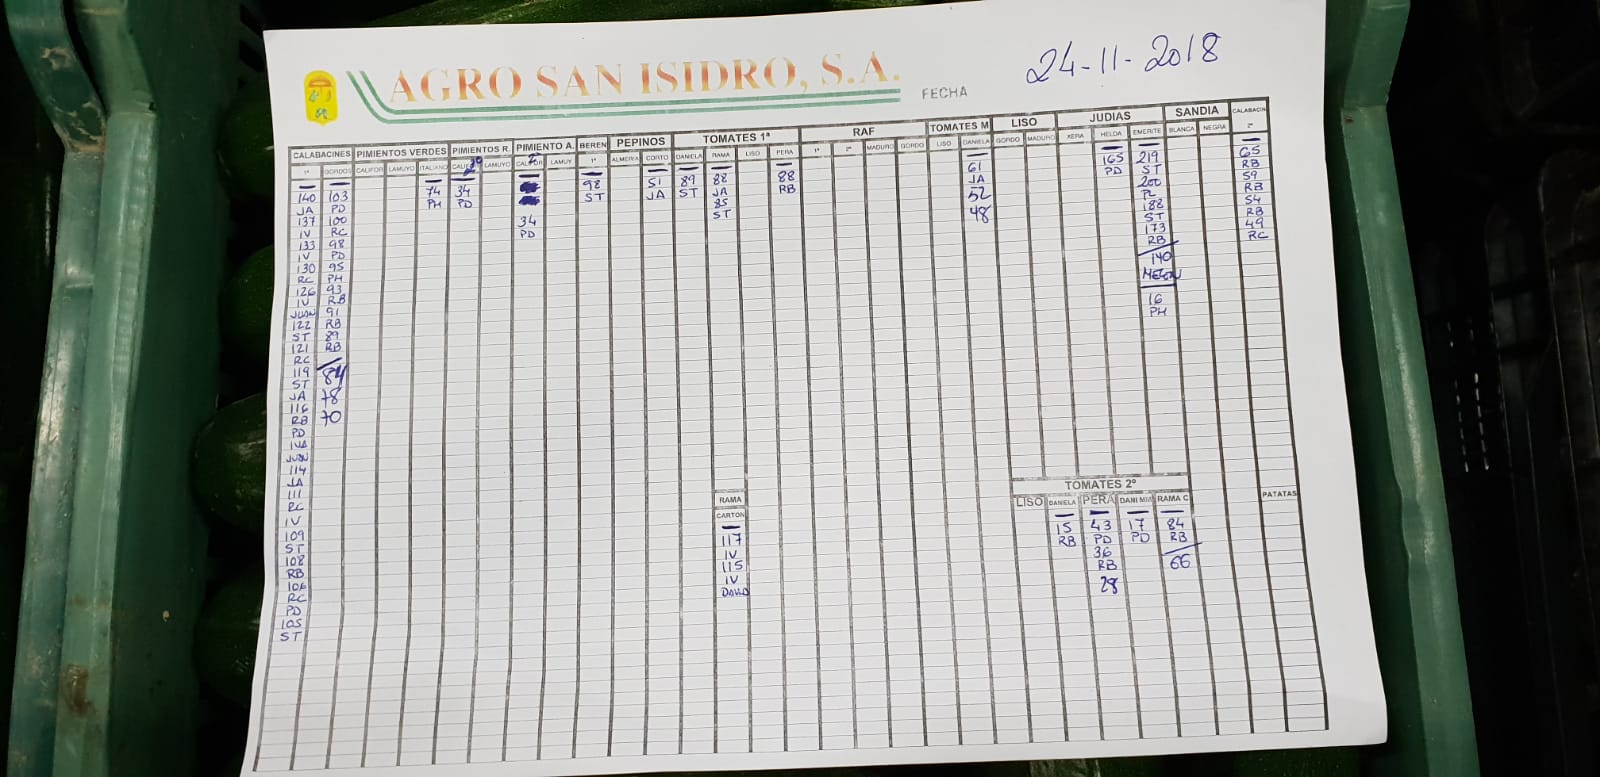 AGRO SAN ISIDRO, S.A.
FECHA
24-11-2018
CALABACINES PIMIENTOS VERDES PIMIENTOS R. PIMIENTO A. BEREN PEPINOS TOMATES 1ª RAF TOMATES M LISO JUDIAS SANDIA CALABACIN
1ª GORDOS CALIFOR LAMUYO ITALIANO CALIF LAMUYO CALIFOR LAMUY 1ª ALMERIA CORTO DANIELA RAMA LISO PERA 1ª 2ª MADURO GORDO LISO DANIELA GORDO MADURO XERA HELDA EMERITE BLANCA NEGRA 2ª
140
JA
137
IV
133
IV
130
RC
126
IV
JUAN
122
ST
121
RC
119
ST
JA
116
RB
PD
IVA
JUAN
114
JA
111
RC
IV
109
ST
108
RB
106
RC
PD
105
ST
103
PD
100
RC
98
PD
95
PH
93
RB
91
RB
89
RB
84
78
70
74
PH
34
PD
2
34
PD
98
ST
51
JA
89
ST
88
JA
85
ST
88
RB
61
JA
52
48
165
PD
219
ST
200
PL
188
ST
173
RB
140
16
PH
65
RB
59
RB
54
RB
49
RC
RAMA
CARTON
117
IV
115
IV
DAVID
TOMATES 2º
LISO DANIELA PERA RAMA C
15
RB
43
PD
36
RB
28
17
PD
84
RB
66
PATATAS